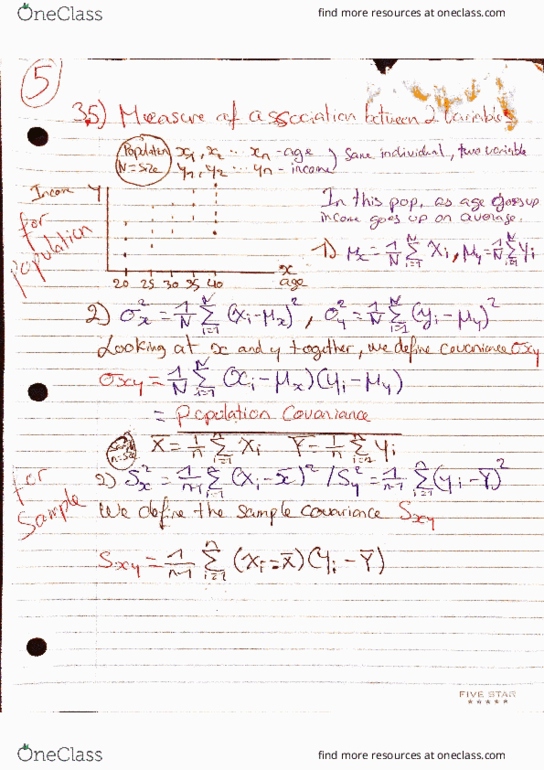 OneClass
find more resources at oneclass.com
5
3.5) Measure of association between 2 variables
Population
N = size
x₁, x₂ ... xn - age
y₁, y₂ ... yn - income
} Same individual, two variable
Income Y
In this pop. as age goes up
income goes up on average.
for
population
1) μx = 1/N Σ(i=1..N) xi, μy = 1/N Σ(i=1..N) yi
x
age
20 25 30 35 40
2) σ²x = 1/N Σ(i=1..N) (xi - μx)², σ²y = 1/N Σ(i=1..N) (yi - μy)²
Looking at x and y together, we define covariance σxy
σxy = 1/N Σ(i=1..N) (xi - μx)(yi - μy)
= Population Covariance
x̄ = 1/n Σ(i=1..n) xi Ȳ = 1/n Σ(i=1..n) yi
for
Sample
2) S²x = 1/n-1 Σ(i=1..n) (xi - x̄)² / S²y = 1/n-1 Σ(i=1..n) (yi - Ȳ)²
We define the sample covariance Sxy
Sxy = 1/n-1 Σ(i=1..n) (xi - x̄)(yi - Ȳ)
FIVE STAR
★★★★★
OneClass
find more resources at oneclass.com